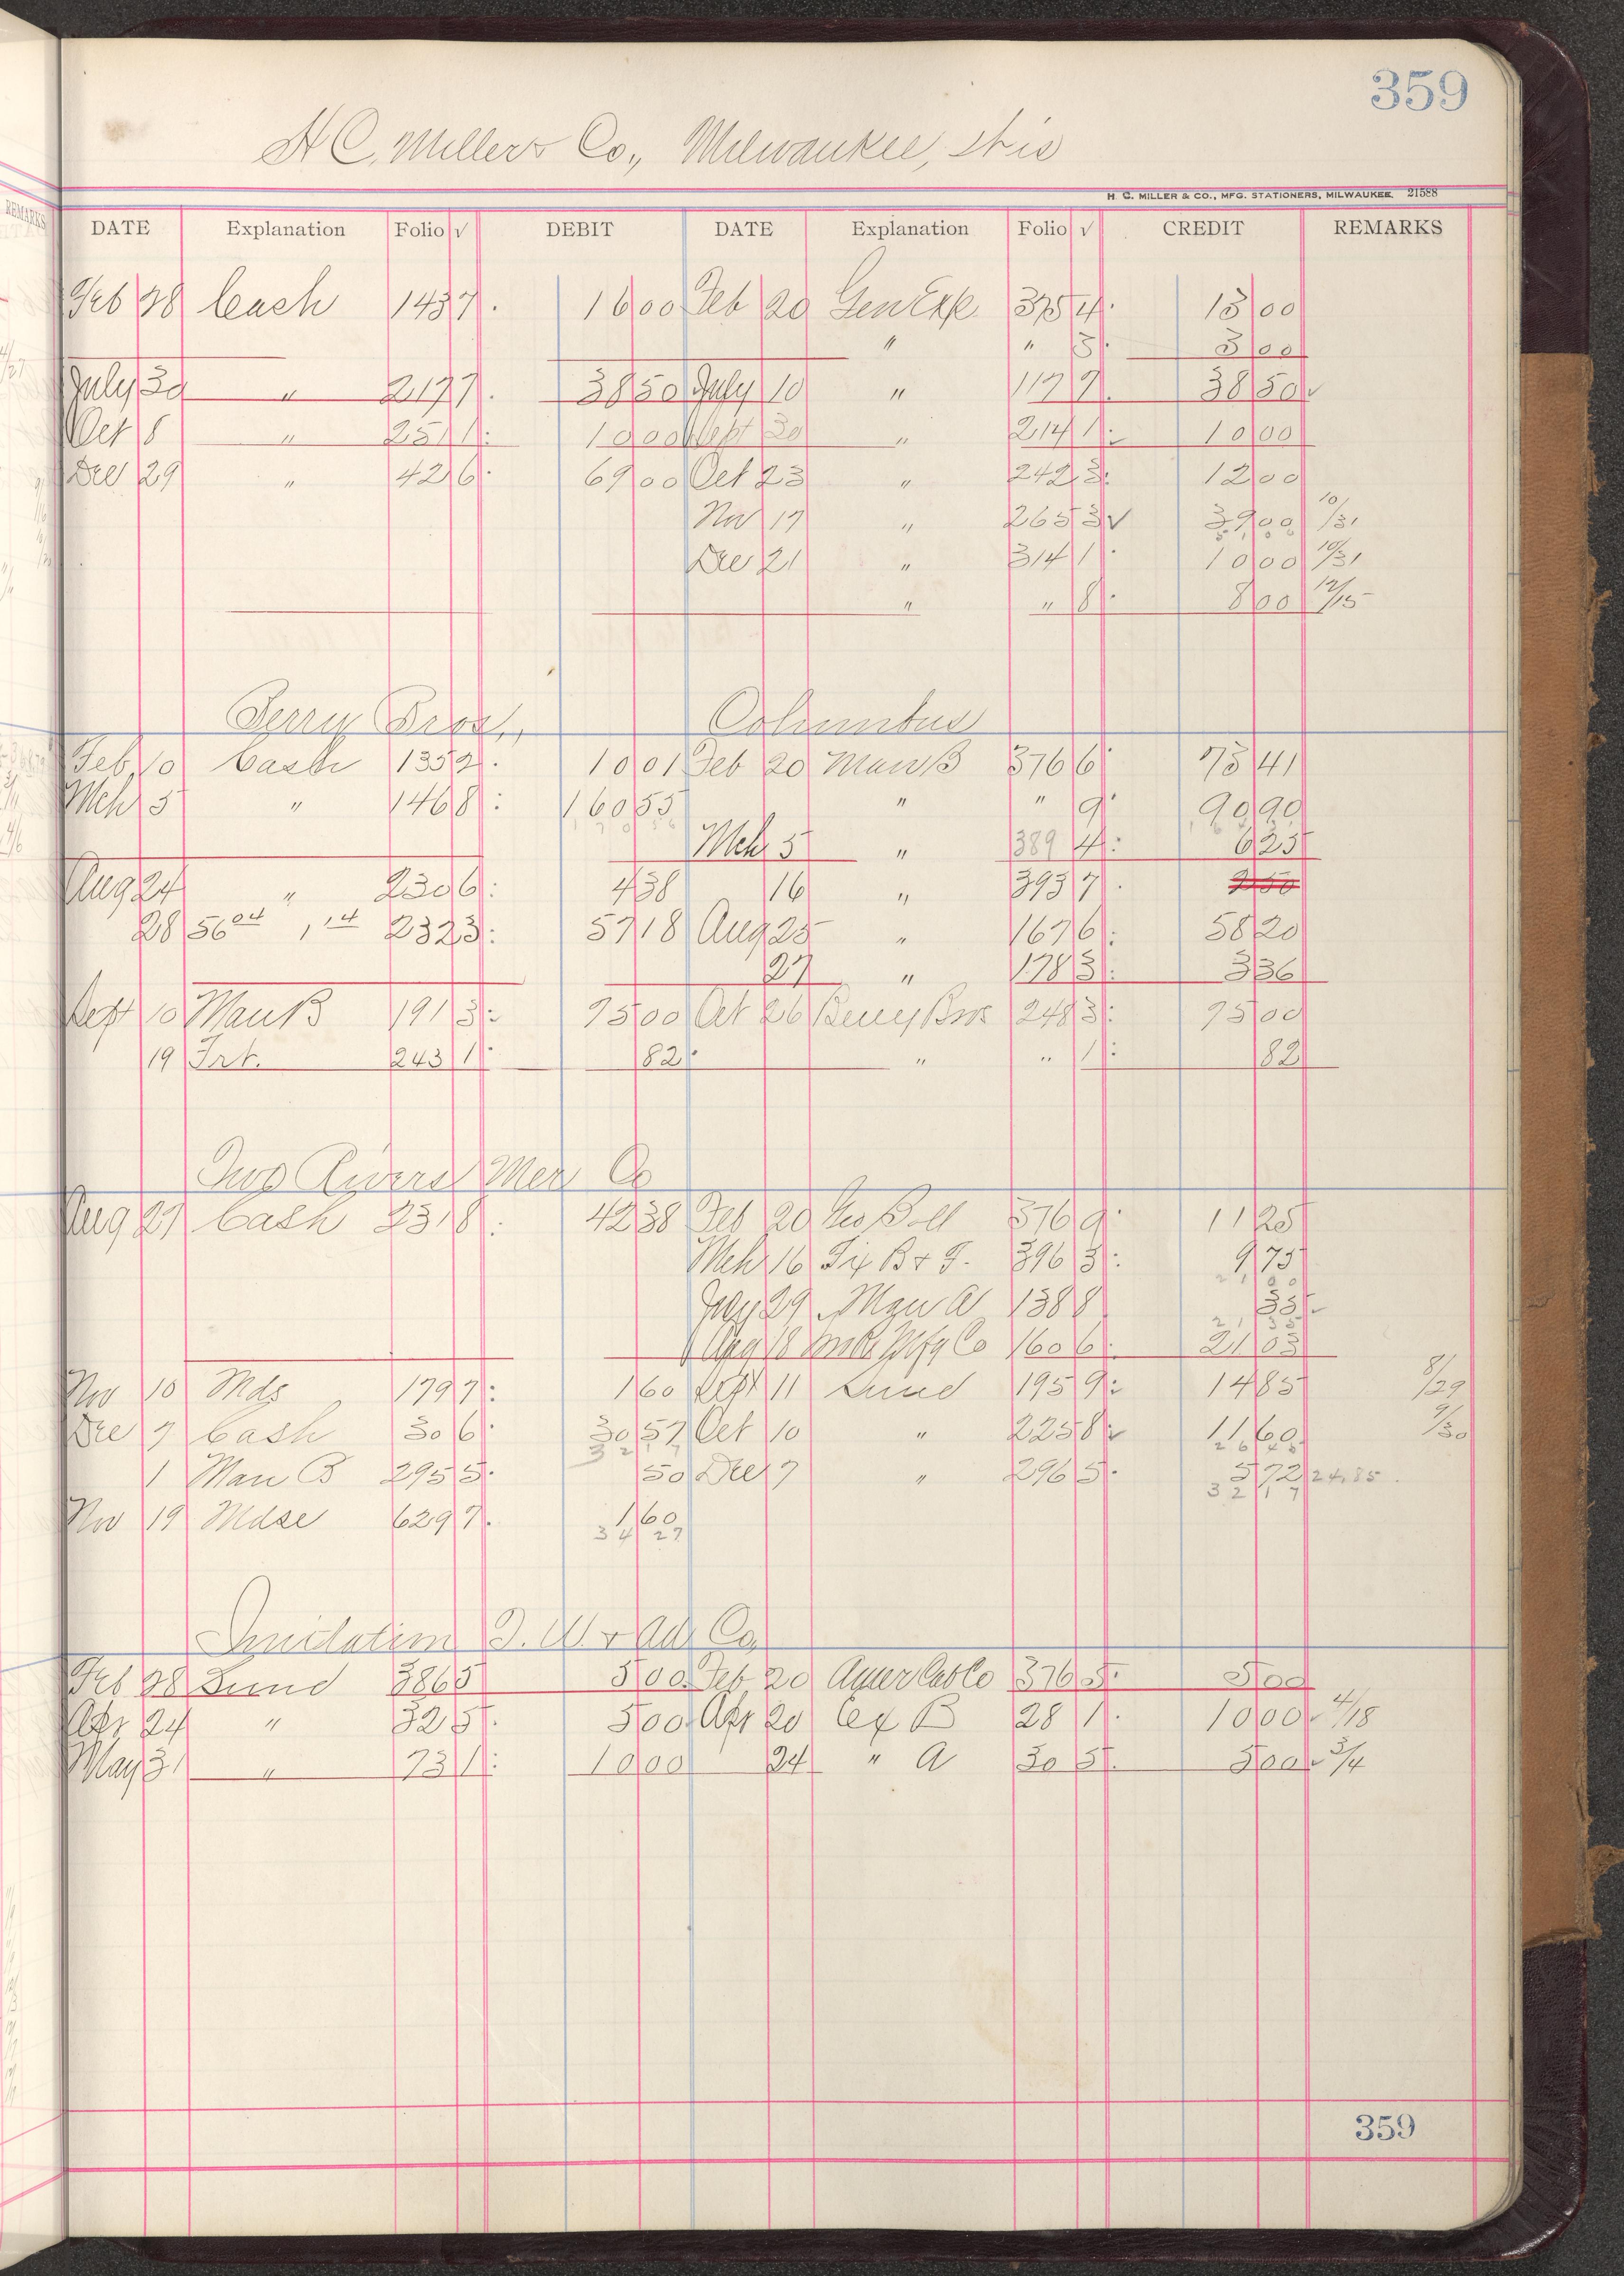 359
H C. Miller & Co., Milwaukee, Wis
H. C. MILLER & CO., MFG. STATIONERS, MILWAUKEE. 21588
DATE Explanation Folio √ DEBIT DATE Explanation Folio √ CREDIT REMARKS
Feb 28 Cash 143 7 16 00 Feb 20 Gen Exp 375 4 13 00
" " 3 3 00
July 30 " 217 7 38 50 July 10 " 117 7 38 50 ✓
Oct 8 " 251 1 10 00 Sept 30 " 214 1 10 00
Dec 29 " 42 6 69 00 Oct 23 " 242 3 12 00
Nov 17 " 265 3 ✓ 39 00 10/31
51 00
Dec 21 " 314 1 10 00 10/31
" " 8 8 00 12/15
Bros., Columbus
Feb 10 Cash 135 2 10 01 Feb 20 Man B 376 6 73 41
Mch 5 " 146 8 160 55 " " 9 90 90
170 56
Mch 5 " 389 4 6 25
Aug 24 " 230 6 4 38 16 " 393 7 2 50
28 56 04 1 14 232 3 57 18 Aug 25 " 167 6 58 20
27 " 178 3 3 36
Sept 10 Man B 191 3 95 00 Oct 26 Berry Bros 248 3 95 00
19 Frt. 243 1 82 " " 1 82
Two Rivers Mer Co
Aug 27 Cash 231 8 42 38 Feb 20 Geo Boll 376 9 11 25
Mch 16 Fix B & F. 396 3 9 75
21 00
July 29 Man A 138 8 35
21 35
Aug 18 Mfg Co 160 6 21 03
Nov 10 Mds 179 7 1 60 Sept 11 Sund 195 9 14 85 8/29
Dec 7 Cash 30 6 30 57 Oct 10 " 225 8 ✓ 11 60 9/30
32 17 26 45
1 Man B 295 5 50 Dec 7 " 296 5 5 72 24.85
32 17
Nov 19 Mdse 629 7 1 60
34 27
T. W. & Co
Feb 28 Sund 386 5 5 00 Feb 20 Amer Co 376 5 5 00
Apr 24 " 32 5 5 00 Apr 20 Ex B 28 1 10 00 ✓ 4/18
May 31 " 73 1 10 00 24 " A 30 5 5 00 ✓ 3/4
359